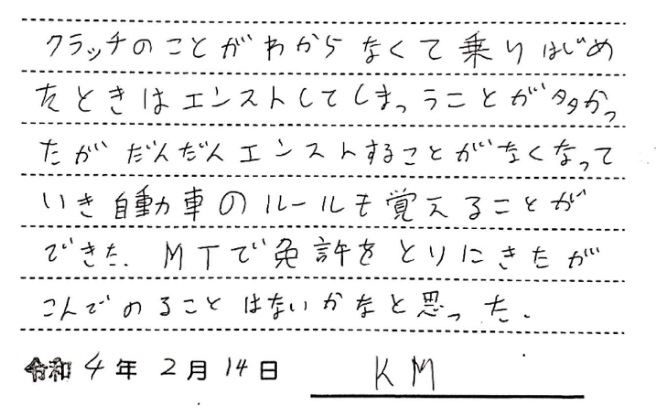 クラッチのことがわからなくて乗りはじめ
たときはエンストしてしまっうことが多かっ
たがだんだんエンストすることがなくなって
いき自動車のルールも覚えることが
できた. MTで免許をとりにきたが
こんでのることはないかなと思った.
令和4年2月14日 KM